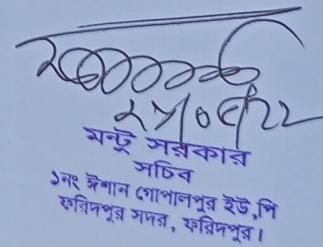 মন্টু সরকার
সচিব
১নং ঈশান গোপালপুর ইউ,পি
ফরিদপুর সদর, ফরিদপুর।